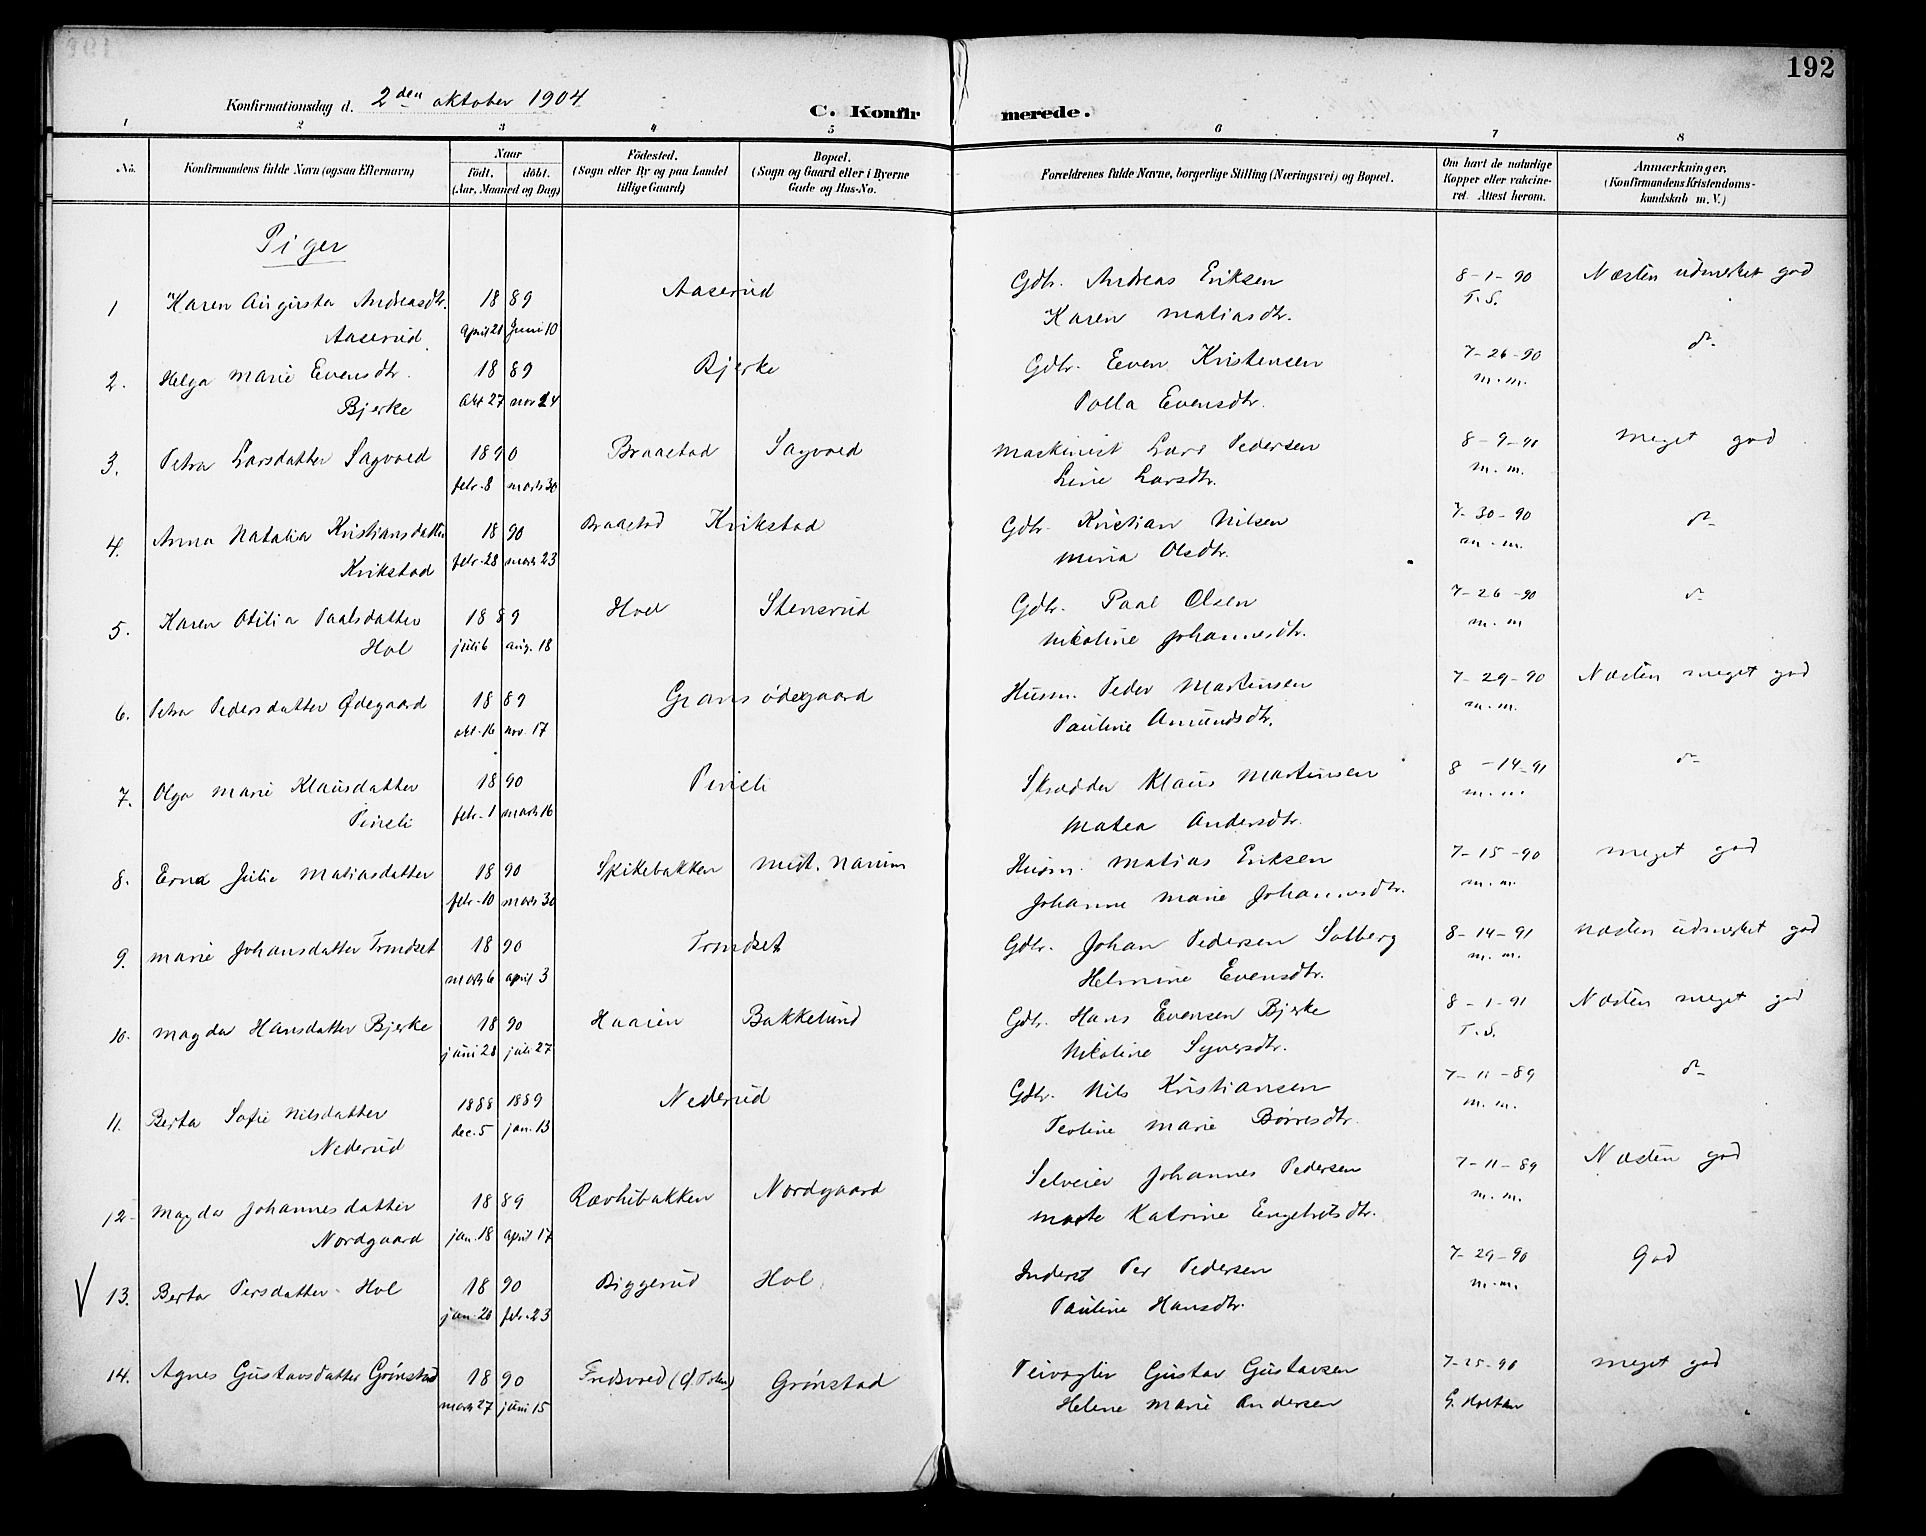 192
Konfirmationsdag d. 2den oktober 1904
C. Konfirmerede.
1 2 3 4 5 6 7 8
No.
Konfirmandens fulde Navn (ogsaa Efternavn)
Naar
Født. døbt.
(Aar, Maaned og Dag)
Fødested.
(Sogn eller By og paa Landet
tillige Gaard)
Bopæl.
(Sogn og Gaard eller i Byerne
Gade og Hus-No.
Forældrenes fulde Navne, borgerlige Stilling (Næringsvei) og Bopæl.
Om havt de naturlige
Kopper eller vakcine-
ret. Attest herom.
Anmærkninger,
(Konfirmandens Kristendoms-
kundskab m. V.)
Piger
1 Karen Augusta Andreasdtr. 18 89 Aaserud Gdbr. Andreas Eriksen 8-1-90 Næsten udmerket god
Aaserud april 21 Juni 10 Karen Matiasdtr. T.S.
2. Helga Marie Evensdtr. 18 89 Bjerke Gdbr. Even Kristensen 7-26-90 do
Bjerke okt 27 nov 24 Polla Evensdtr. m.m.
3. Petra Larsdatter Sagvold 1890 Braastad Sagvold Maskinist Lars Pedersen 8-9-91 Meget god
febr. 8 marts 30 Line Larsdtr. m.m.
4. Anna Natalia Kristiansdatter 18 90 Braastad Kvikstad Gdbr. Kristian Nilsen 7-30-90 do
Kvikstad febr. 28 marts 23 Mina Olsdtr. m.m.
5. Karen Otilia Paalsdatter 18 89 Hol Stensrud Gdbr. Paal Olsen 7-26-90 do
Hol juli 6 aug. 18 Nikoline Johannesdtr. m.m
6. Petra Pedersdatter Ødegaard 18 89 Gransødegaard Husm. Peder Martinsen 7-29-90 Næsten meget god
okt. 16 nov. 17 Pauline Amundsdtr. m.m.
7. Olga Marie Klausdatter 18 90 Pineli Skrædder Klaus Martinsen 8-14-91 do
Pineli febr. 1 marts 16 Matea Andersdtr. m.m.
8. Erna Julie Matiasdatter 18 90 Skikebakken Midt. Narum Husm. Matias Eriksen 7-15-90 Meget god
febr. 10 marts 30 Johanne Marie Johannesdtr. m.m.
9. Marie Johansdatter Trondset 18 90 Trondset Gdbr. Johan Pedersen Solberg 8-14-91 Næsten udmerket god
marts 6 april 3 Helmine Evensdtr. m.m.
10. Magda Hansdatter Bjerke 18 90 Haaien Bakkelund Gdbr. Hans Evensen Bjerke 8-1-91 Næsten meget god
juni 28 juli 27 Nikoline Syversdtr. T.S.
11. Berta Sofie Nilsdatter 1888 1889 Nederud Gdbr. Nils Kristiansen 7-11-89 do
Nederud dec. 5 jan. 13 Teoline Marie Børresdtr. m.m.
12. Magda Johannesdatter 18 89 Rævhibakken Nordgaard Selveier Johannes Pedersen 7-11-89 Næsten god
Nordgaard jan. 18 april 17 Marte Katrine Engebretsdtr. m.m.
V 13. Berta Persdatter Hol 18 90 Biggerud Hol. Inderst Per Pedersen 7-29-90 God
jan. 20 febr. 23 Pauline Hansdtr. m.m.
14. Agnes Gustavsdatter Grønstad 18 90 Fredsvold (Ø. Toten) Grønstad Veivogter Gustav Gustavsen 7-25-90 Meget god
marts 27 juni 15 Helene Marie Andersen G. Holtan